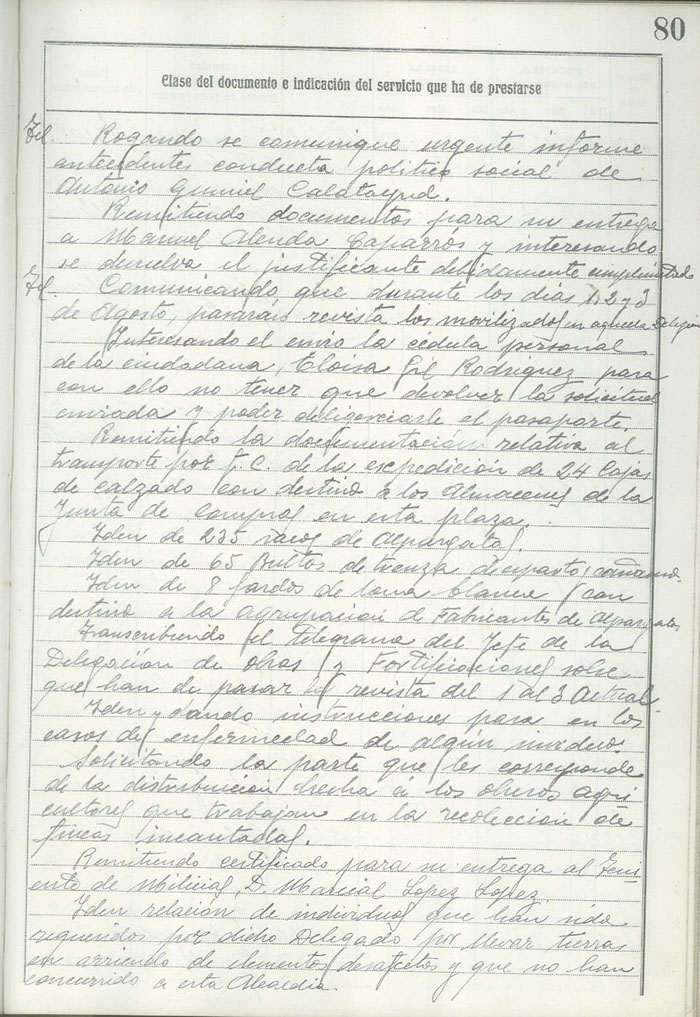 80
Clase del documento e indicación del servicio que ha de prestarse
Tel. Rogando se comunique urgente informe
antecedentes conducta politico social de
Antonio Gumiel Calatayud.
Remitiendo documentos para su entrega
a Manuel Alenda Caparrós y interesando
se devuelva el justificante debidamente cumplimentado
Tel. Comunicando, que durante los dias 1, 2 y 3
de Agosto, pasaran revista los movilizados en aquella
Interesando el envio la cedula personal
de la ciudadana, Eloisa Gil Rodriguez para
con ello no tener que devolver la solicitud
enviada y poder diligenciarle el pasaporte.
Remitiendo la documentación relativa al
transporte por F.C. de la expedición de 24 Cajas
de calzado con destino a los Almacenes de la
Junta de Compras en esta plaza.
Iden de 235 sacos de Alpargatas.
Iden de 65 Bultos de trenza de esparto
Iden de 8 fardos de lona blanca (con
destino a la agrupación de Fabricantes de Alpargatas
Transcribiendo el telegrama del Jefe de la
Delegación de obras y Fortificaciones sobre
que han de pasar revista del 1 al 3 Actual.
Iden y dando instrucciones para en los
casos de enfermedad de algún
Solicitando la parte que les corresponde
de la distribución hecha á los obreros agri
cultores que trabajan en la recolección de
fincas incautadas.
Remitiendo certificado para su entrega al Teni
ente de Milicias, D. Marcial Lopez Lopez.
Iden relación de individuos que han sido
requeridos por dicho Delegado por llevar tierras
en arriendo de elementos desafectos y que no han
concurrido a esta Alcaldia.